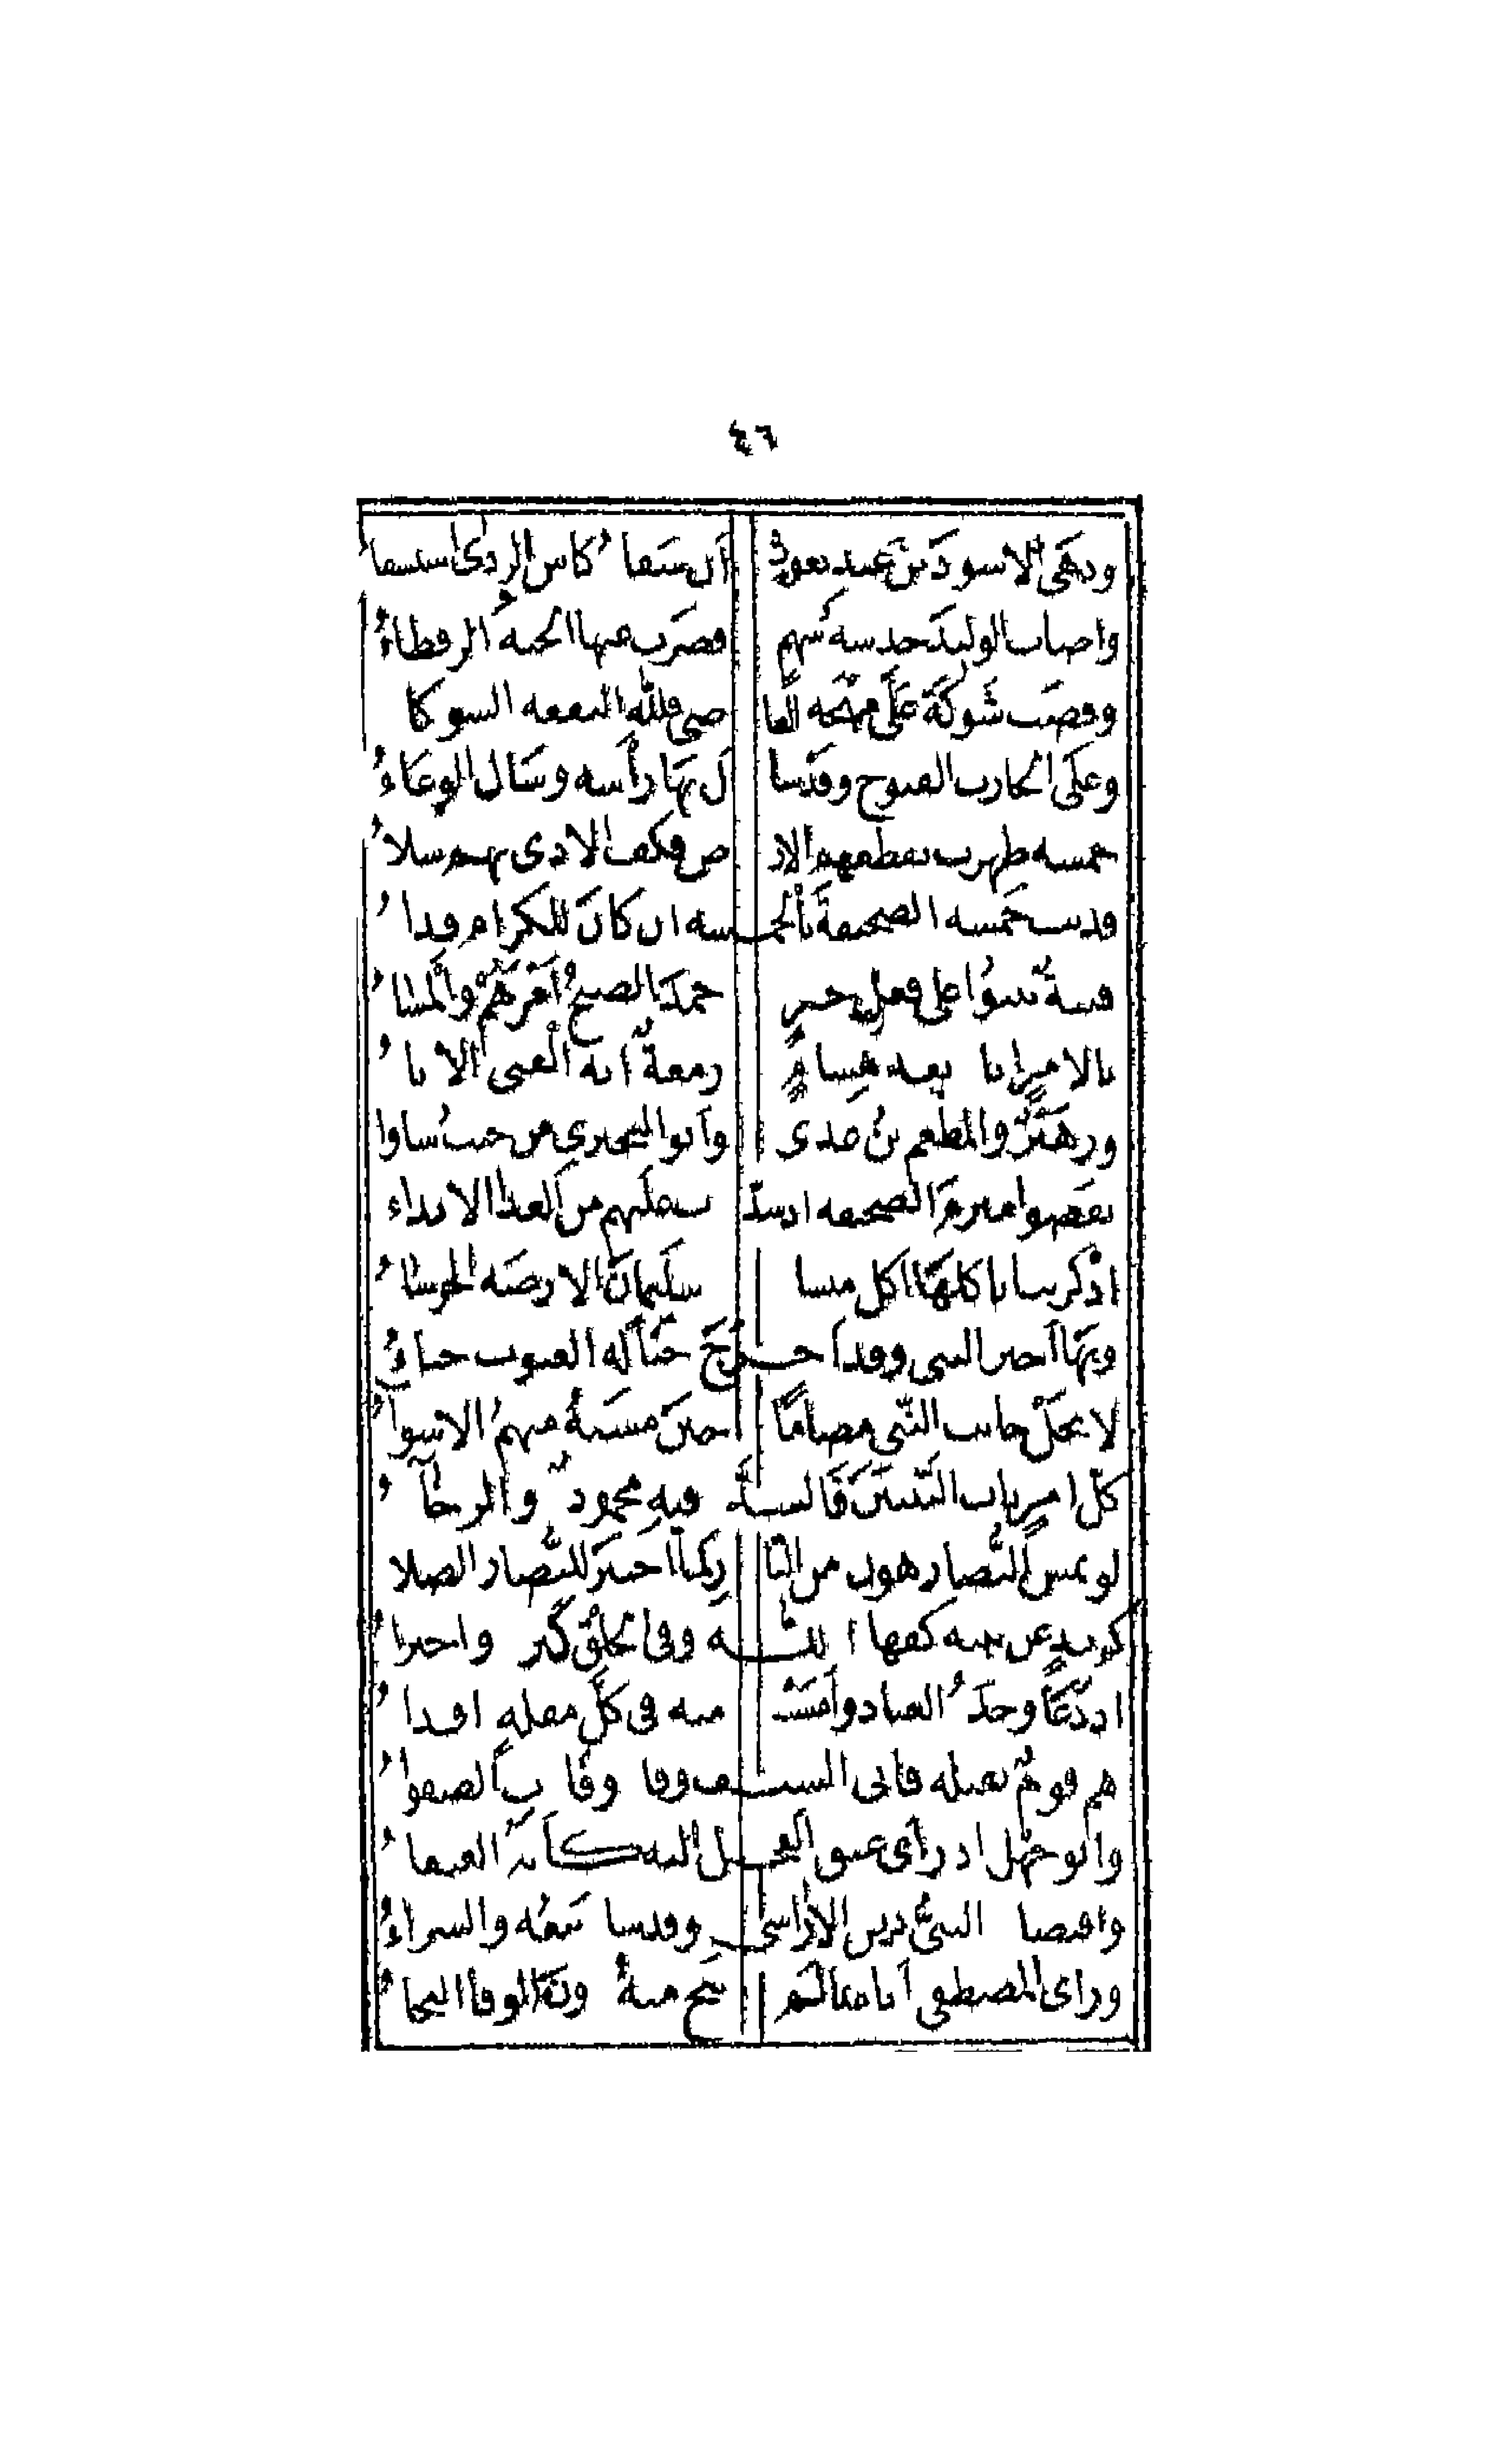 ٤٦
ودهى الاسود بن عبد يغوث ان سقاه كاس الردى استسقاء
واصاب الوليد خدشة سهم قصرت عنها الحية الرقطاء
وقضت شوكة على مهجة العا صي فلله النقعة الشوكا
وعلى الحارث القيوح وقد سا ل بها رأسه وسال الوعاء
خمسة طهرت بقطعهم الار ض فكف الاذى بهم شلاء
فديت خمسة الصحيفة بالخمسة ان كان للكرام فداء
فتية بيتوا على فعل خير حمد الصبح أمرهم والمساء
يالامر اتاه بعد هشام زمعة انه الفتى الاتاء
وزهير والمطعم بن عدي وأبوا البحتري من حيث شاوا
نقضوا مبرم الصحيفة اذ شد ت عليهم من العدا الانداء
اذكرتنا باكلها اكل منسا سليمان الارضة الخرساء
وبها أخبر النبي وكم أخرج خبأ له الغيوب خباء
لا تخل جانب النبي مضاما حين مسته منهم الاسواء
كل امر ناب النبيين فالشدة فيه محمودة والرخاء
لو يمس النضار هون من النا ر لما اختير للنضار الصلا
كم يد عن نبيه كفها الله وفي الخلق كثر واجتراء
اذ دعا وحده العباد وأمست منه في كل مقلة اقذاء
هم قوم بقتله فابى السيف وفاء وفاءت الصفواء
وابو جهل اذ رأى عنق الفحل اليه كأنه العنقاء
واقتضاه النبي دين الاراشي وقد ساء بيعه والشراء
وراى المصطفى أتاه بما لم ينج منه دون الوفا النجاء